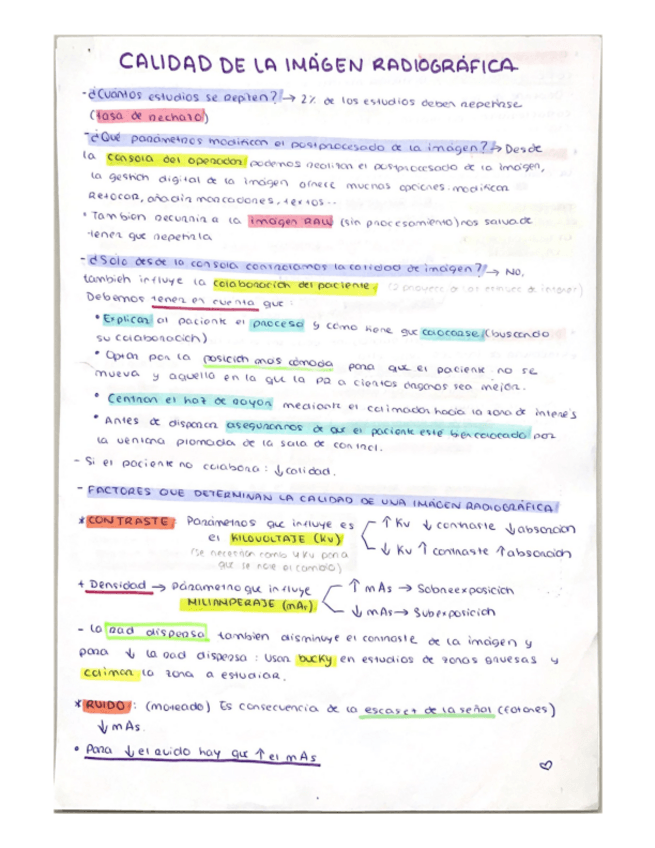 CALIDAD DE LA IMÁGEN RADIOGRÁFICA
- ¿Cuántos estudios se repiten? → 2% de los estudios deben repetirse
(tasa de rechazo)
- ¿Qué parámetros modifican el postprocesado de la imágen? → Desde
la consola del operador podemos realizar el postprocesado de la imágen,
la gestión digital de la imágen ofrece muchas opciones: modificar
Retocar, añadir marcadores, textos...
• Tambien recurrir a la imágen RAW (sin procesamiento) nos salva de
tener que repetirla
- ¿Sólo desde la consola controlamos la calidad de imágen? → No,
también influye la colaboración del paciente.
Debemos tener en cuenta que:
• Explicar al paciente el proceso y cómo tiene que colocarse (buscando
su colaboración)
• Optar por la posición más cómoda para que el paciente no se
mueva y aquella en la que la PR a ciertos órganos sea mejor.
• Centrar el haz de rayos mediante el colimador hacia la zona de interés
• Antes de disparar asegurarnos de que el paciente esté bien colocado por
la ventana plomada de la sala de control.
- Si el paciente no colabora: ↓ calidad.
- FACTORES QUE DETERMINAN LA CALIDAD DE UNA IMÁGEN RADIOGRÁFICA
* CONTRASTE: Parámetros que influye es ↑ Kv ↓ contraste ↓ absorción
el KILOVOLTAJE (Kv) ↓ Kv ↑ contraste ↑ absorción
(Se necesitan como 4 Kv para
que se note el cambio)
+ Densidad → Párametro que influye ↑ mAs → Sobreexposición
MILIAMPERAJE (mAs) ↓ mAs → Subexposición
- la rad dispersa también disminuye el contraste de la imágen y
para ↓ la rad dispersa: usar bucky en estudios de zonas gruesas y
colimar la zona a estudiar.
* RUIDO: (moteado) Es consecuencia de la escasez de la señal (fotones)
↓ mAs.
• Para ↓ el ruido hay que ↑ el mAs